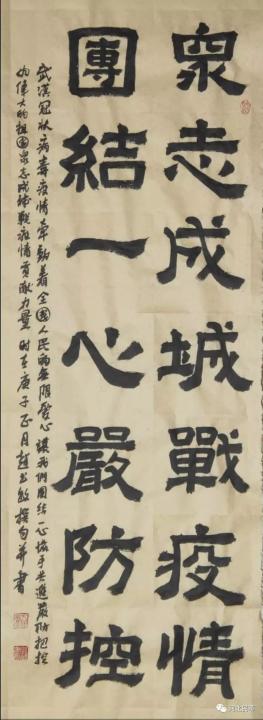 衆志成城戰疫情
團結一心嚴防控
武漢冠狀病毒疫情牽動着全國人民的無限愛心讓我們團結一心攜手共進嚴防把控
為偉大的祖國衆志成城戰疫情貢獻力量時在庚子正月趙撰句并書